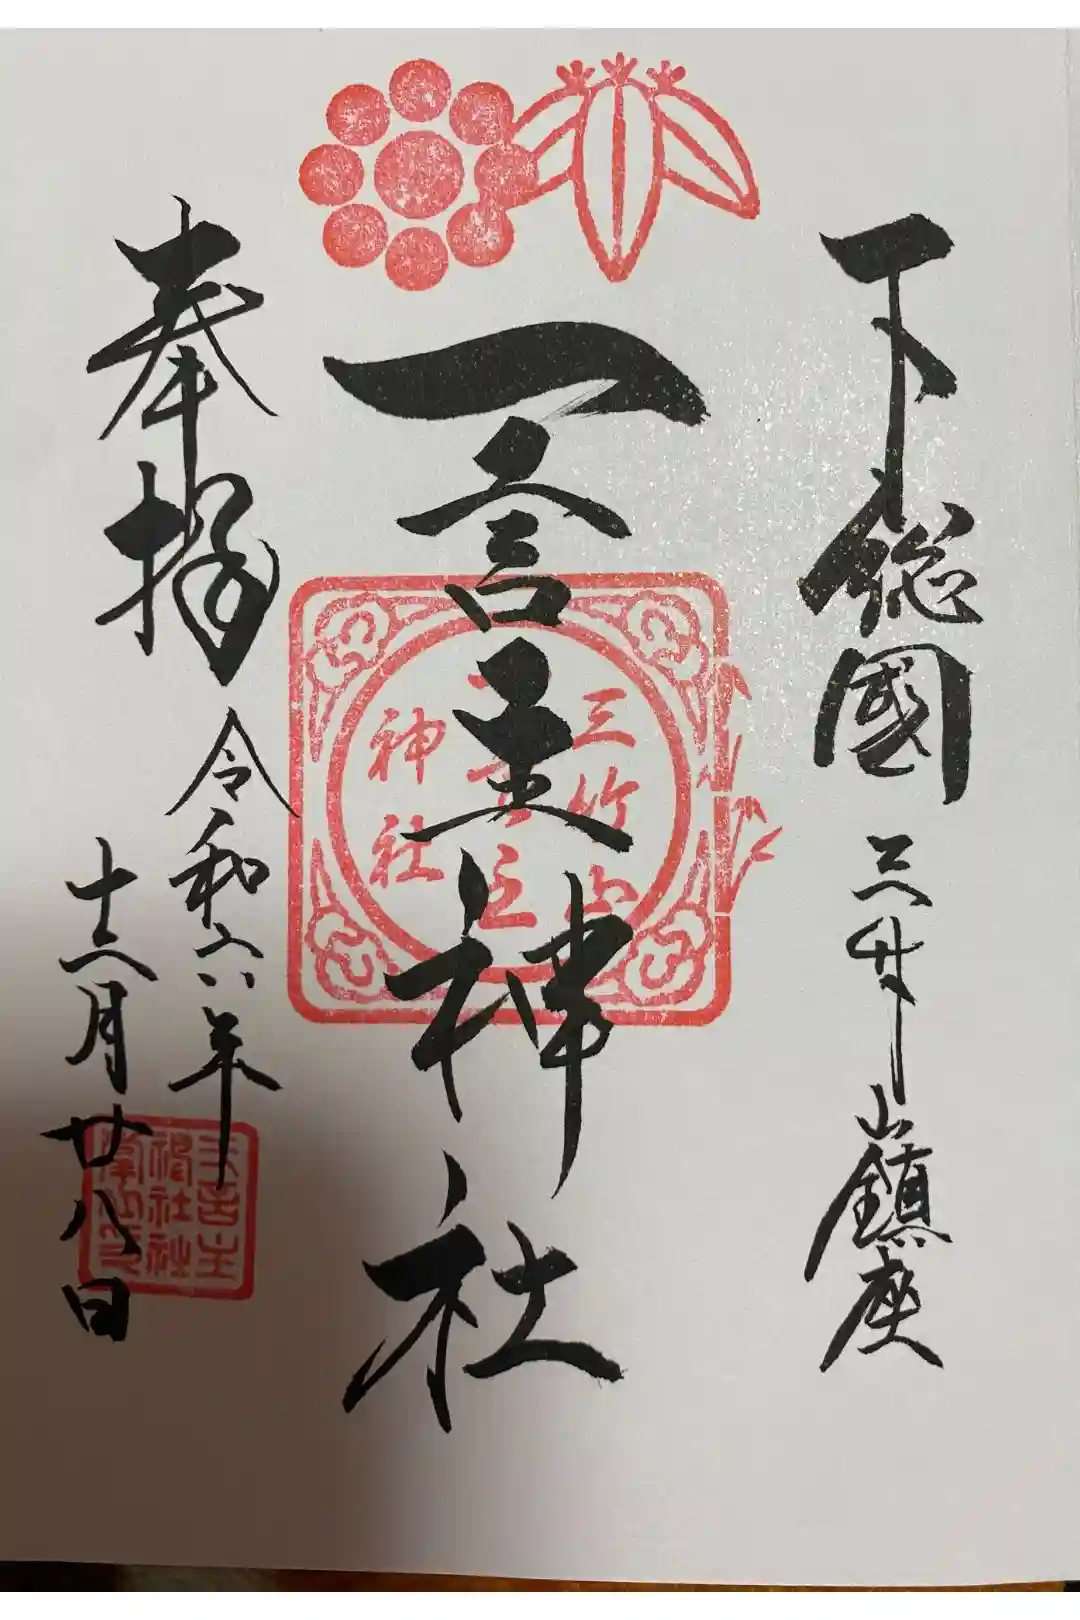 下総國 三竹山鎮座
一言主神社
三竹山
一言主
神社
奉拝 令和六年
十二月廿八日
一言主
神社社